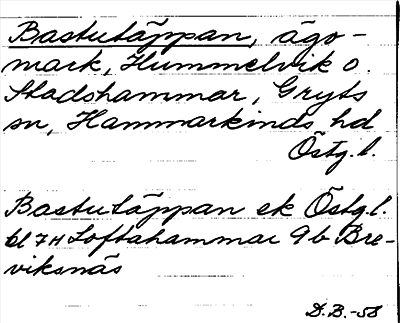 Bastutäppan, ägo-
mark, Hummelvik o.
Stadshammar, Gryts
sn, Hammarkinds hd
Östg.l.
Bastutäppan ek Östg.l.
bl 7H Loftahammar 9b Bre-
viksnäs
D.B.-58